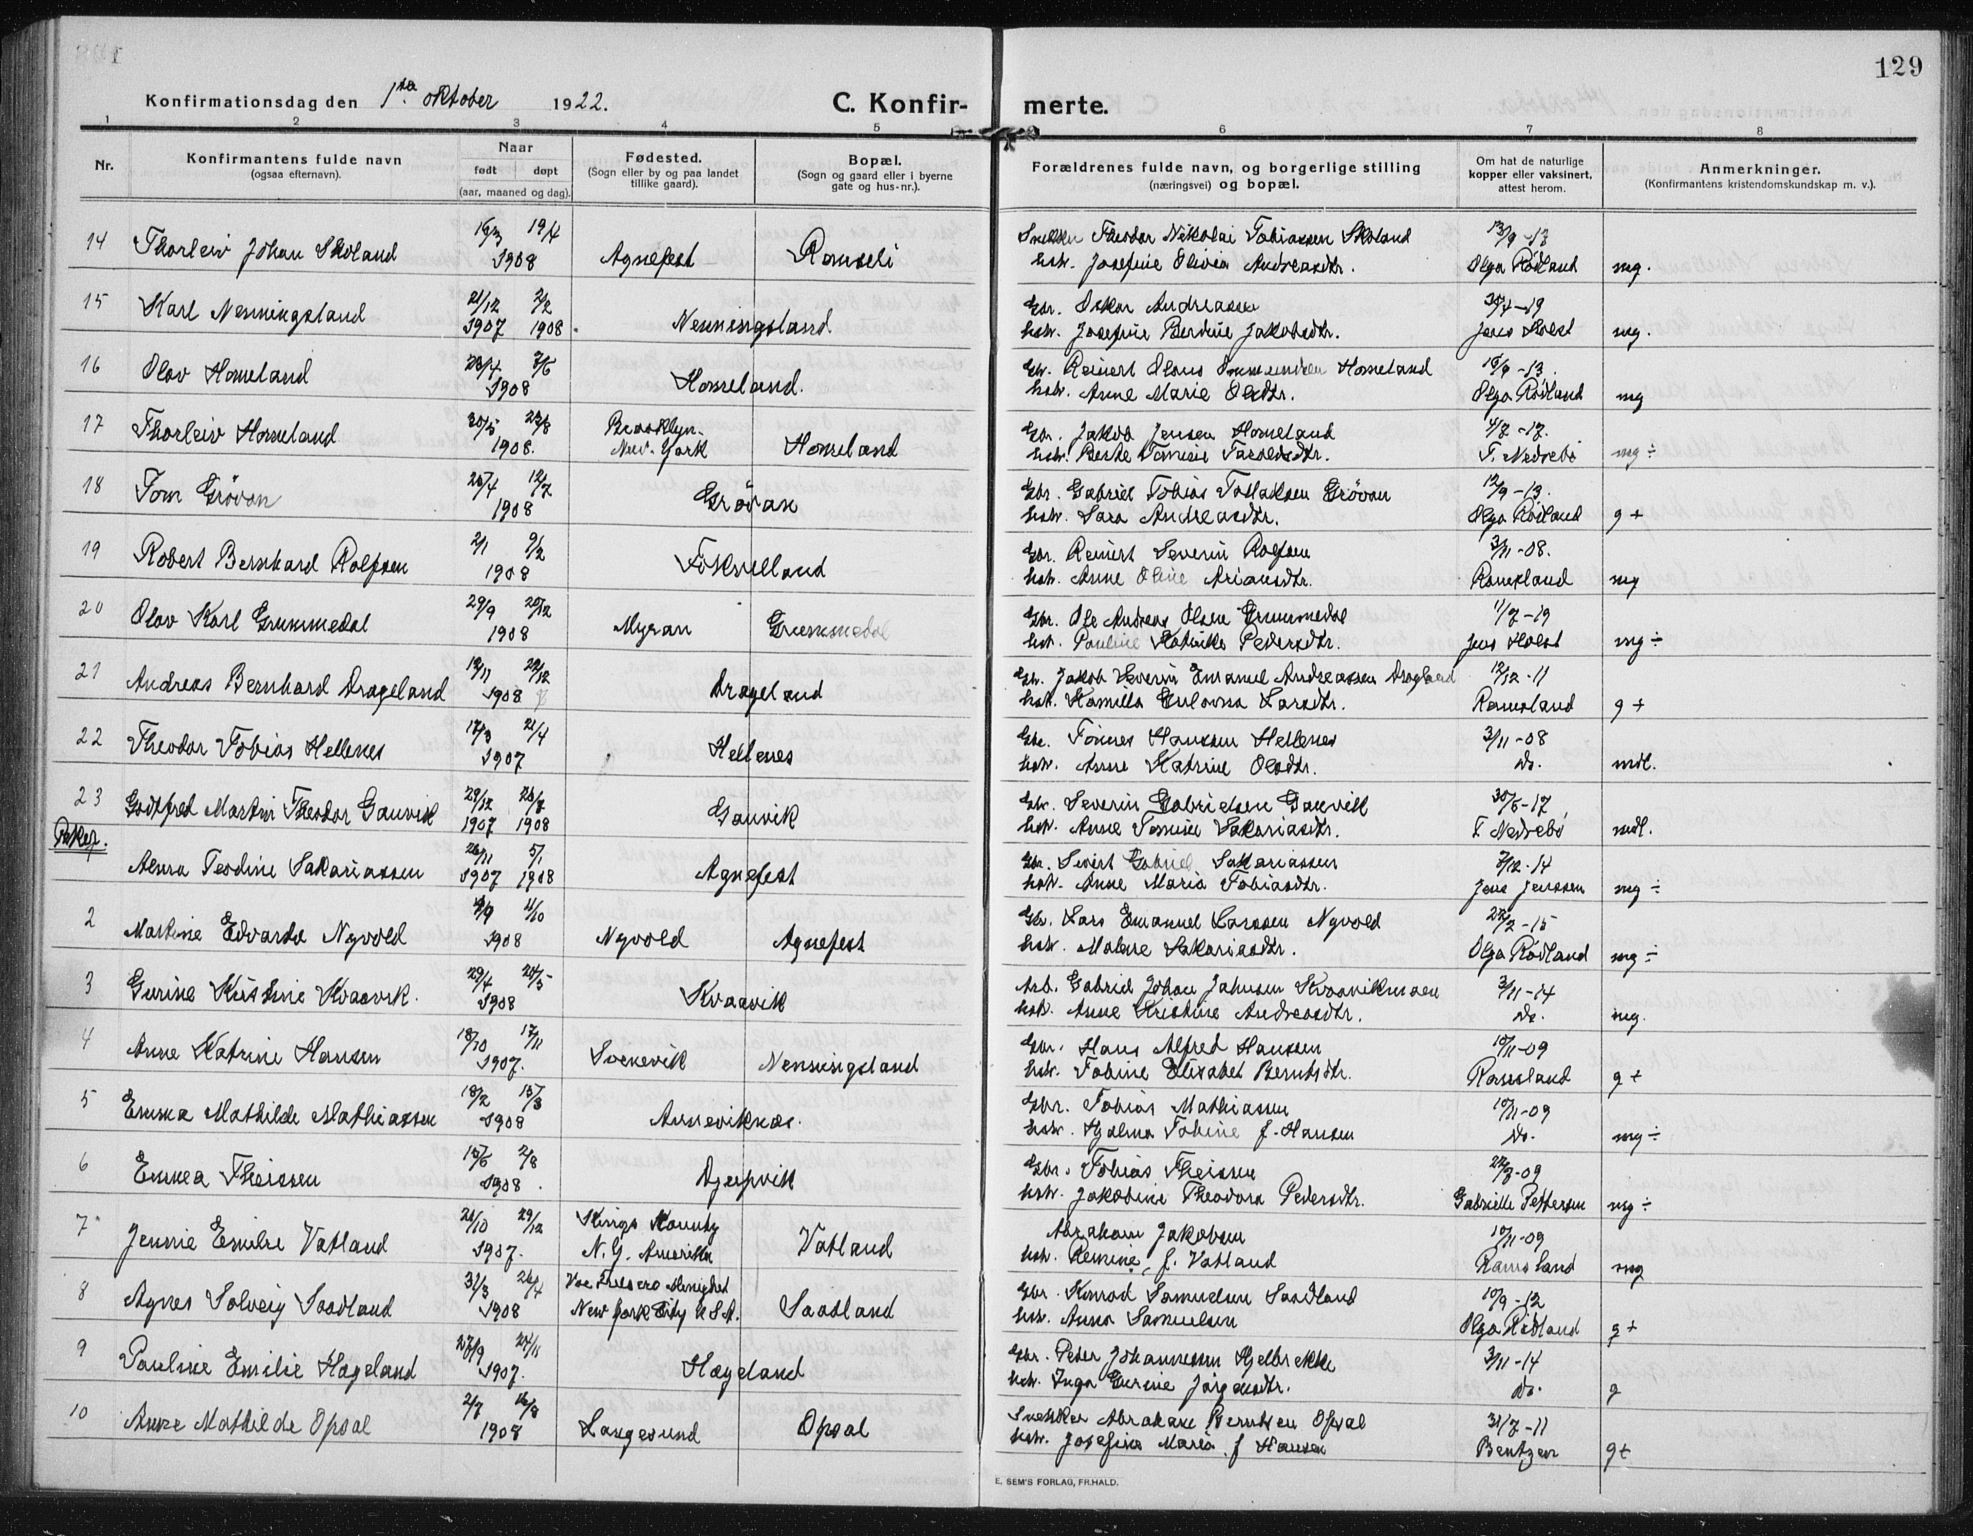 129
Konfirmationsdag den 1ste oktober 1922.
C. Konfir- merte.
1 2 3 4 5 6 7 8
Nr.
Konfirmantens fulde navn
(ogsaa efternavn).
Naar
født døpt
(aar, maaned og dag).
Fødested.
(Sogn eller by og paa landet
tillike gaard).
Bopæl.
(Sogn og gaard eller i byerne
gate og hus-nr.).
Forældrenes fulde navn, og borgerlige stilling
(næringsvei) og bopæl.
Om hat de naturlige
kopper eller vaksinert,
attest herom.
Anmerkninger.
(Konfirmantens kristendomskundskap m. v.).
14 Thorleiv Johan Skoland 19/4 1908 Agnefest Ramseli
Snekker Theodor Nikolai Tobiassen Skoland
hstr. Josefine Olivia Andreasdtr. 13/9-17 Olga Rødland mg.
15 Karl Nenningsland 21/12 1907 2/2 1908. Nenningsland
Gbr. Oskar Andreassen
hstr. Josefine Berdine Jakobsdtr. 30/4-19 Jens Holst mg.
16 Olav Homeland 1908 Homeland.
Gbr. Reinert Olaus Homeland
hstr. Anne Marie Olsdtr. Olga Rødland mg
17 Thorleiv Homeland 30/5 23/8 1908. Brooklyn. New-York Homeland
Gbr. Jakob Jensen Homeland
hstr. Berte Tomine Taraldsdtr. 4/7-17. T. Nedrebø mg ÷
18 Tom Grövan 1908 Grövan
Gbr. Gabriel Tobias Tollaksen Grövan
hstr. Sara Andreasdtr. 12/9-13. Olga Rödland g +
19 Robert Bernhard Rolfsen 2/1 9/2 1908 Fokselland
Gbr. Reinert Severin Rolfsen
hstr. Anne Oline Ariansdtr. 3/11-08. Ramsland mg
20 Olav Karl Grummedal 29/9 20/12 1908 Myran Grummedal
Gbr. Ole Andreas Olsen Grummedal
hst. Pauline Katrine Pedersdtr. 11/7-19 Jens Holst mg ÷
21 Andreas Bernhard Drageland 1908 Drageland
Gbr. Jakob Severin Emanuel Andreassen Drageland
hst. Kamilla Larsdtr. 12/12-11 Ramsland g +
22 Theodor Tobias Hellenes 17/3 21/4 1907 Hellenes
Gbr. Tönnes Hansen Hellenes
hstr. Anne Katrine Olsdtr. 3/11-08 Do. mdl.
23 Godtfred Martin Theodor Gauvik 29/12 1907 1908 Gauvik
Gbr. Severin Gabrielsen Gauvik
hstr. Anne Tomine Sakariasdtr. 30/6-17 T. Nedrebø mdl.
Piker.
1 Alma Teodine Sakariassen 26/11 1907 5/1 1908 Agnefest
Gbr. Sivert Gabriel Sakariassen
hstr. Anne Maria Tobiasdtr. 7/12-14 Jens Jenssen mg ÷
2 Martine Edvarda Nyvold 4/9 11/10 1908 Nyvold Agnefest
Gbr. Lars Emanuel Larssen Nyvold
hstr. Malene Sakariasdtr. 27/2-15 Olga Rødland mg ÷
3 Gurine Kristine Kvaavik. 29/4 24/5 1908 Kvaavik
Arb. Gabriel Johan Jahnsen Kvaavikmoen
hstr. Anne Kristine Andreasdtr. 3/11-14 Do. mg.
4 Anne Katrine Hansen 18/10 17/11 1907. Svenevik Nenningsland
Gbr. Hans Alfred Hanssen
hstr. Tobine Elisabet Berntsdtr. 10/11-09 Ramsland g +
5 Emma Mathilde Mathiassen 18/2 15/3 1908 Anneviknes.
Gbr. Tobias Mathiassen
hstr. Hjalma Tobine f. Hansen 10/11-09 Do. mg ÷
6 Emma Theissen 15/6 2/8 1908. Djupvik
Gbr. Tobias Theissen
hstr. Jakobine Theodora Pedersdtr. Gabrielle Pettersen mg ÷
7 Jennie Emilie Vatland 29/12 1907. Kings Kounty N.Y. Amerika Vatland
Abraham Jakobsen
hstr. Remine, f. Vatland 10/11-09 Ramsland mg
8 Agnes Solveig Saadland 31/3 26/4 1908 Vor Frelsers Menighet New York City U.S.A. Saadland
Gbr. Konrad Samuelsen Saadland
hstr. Anna Samuelsen 10/9-12 Olga Rødland g +
9 Pauline Emilie Hageland 27/9 24/11 1907. Hægeland
Gbr. Peter Johannessen Hjelbrekke
hstr. Inga Gurine Jörgensdtr. 3/11-14 Do. g
10 Anne Mathilde Opsal 2/7 16/8 1908 Langesund Opsal
Snekker Abraham Berntsen Opsal
hstr. Josefine Maria f Hansen 31/7-11 Bentzen g +
E. SEM'S FORLAG, FR.HALD.